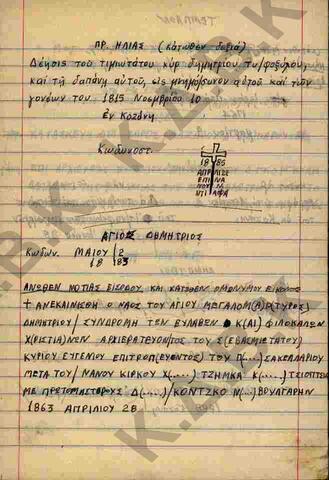 ΠΡ. ΗΛΙΑΣ (κάτωθεν δεξιά)
Δέησις του τιμιωτάτου κύρ δημητρίου
καί τή δαπάνη αὐτοῦ, εἰς μνημόσυνον αὐτοῦ καί τῶν
γονέων του 1815 Νοεμβρίου 10
ἐν Κοζάνη.
Κωδωνοστ.
18 85
ΑΓΙΟΣ ΔΗΜΗΤΡΙΟΣ
Κωδων. ΜΑΙΟΥ 2
18 83
ΑΝΩΘΕΝ ΕΙΣΟΔΟΥ, ΚΑΙ ΚΑΤΩΘΕΝ ΟΜΩΝΥΜΟΥ ΕΙΚΟΝΟΣ
+ ΑΝΕΚΑΙΝΙΣΘΗ Ο ΝΑΟΣ ΤΟΥ ΑΓΙΟΥ ΜΕΓΑΛΟΜ(Α)Ρ(ΤΥΡΟΣ)
ΔΗΜΗΤΡΙΟΥ/ ΣΥΝΔΡΟΜΗ ΤΩΝ ΕΥΛΑΒΩΝ Κ(ΑΙ) ΦΙΛΟΚΑΛΩΝ
Χ(ΡΙΣΤΙΑ)ΝΩΝ ΑΡΧΙΕΡΑΤΕΥΟΝΤΟΣ ΤΟΥ Σ(ΕΒΑΣΜΙΩΤΑΤΟΥ)
ΚΥΡΙΟΥ ΕΥΓΕΝΙΟΥ ΕΠΙΤΡΟΠ(ΕΥΟΝΤΟΣ) ΤΟΥ Π(....) ΣΑΚΕΛΛΑΡΙΟΥ
ΜΕΤΑ ΤΟΥ/ ΝΑΝΟΥ ΚΙΡΚΟΥ Χ(....) ΤΖΗΜΚΑ Κ(.....)
ΜΕ ΠΡΩΤΟΜΑΣΤΟΡΟΥΣ Δ(.....)/ΚΟΝΤΖΚΟ Ν(...) ΒΟΥΛΓΑΡΗΝ
1863 ΑΠΡΙΛΙΟΥ 28